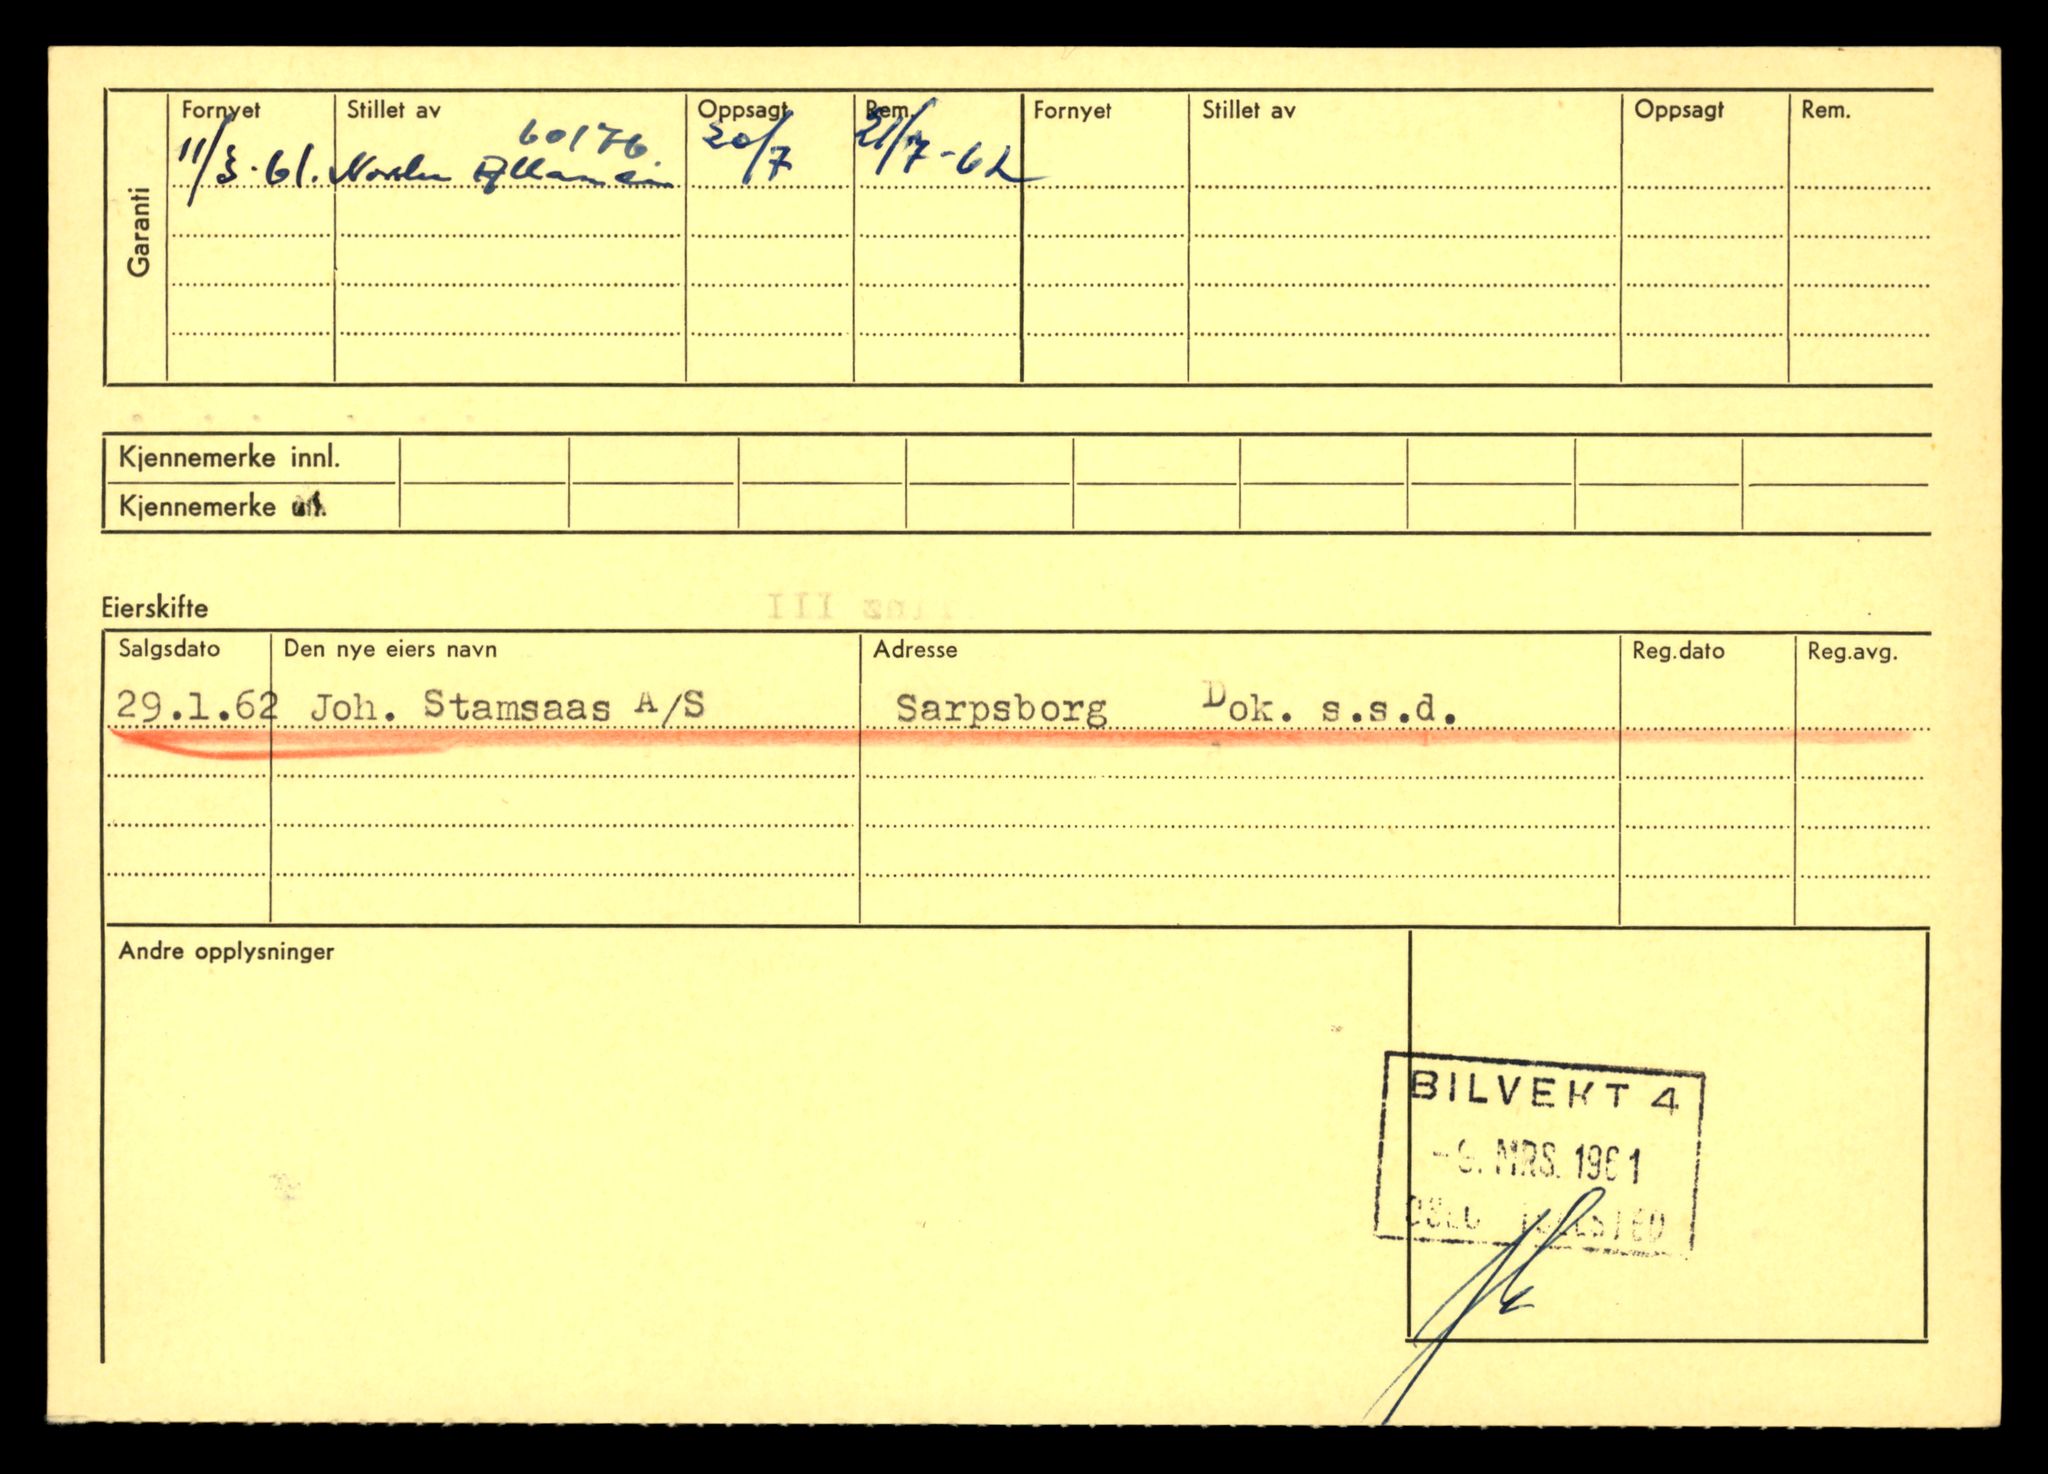 Garanti
Fornyet Stillet av Oppsagt Rem. Fornyet Stillet av Oppsagt Rem.
60176.
11/3-61. 20/7 21/7-62
Kjennemerke innl.
Kjennemerke
Eierskifte
Salgsdato Den nye eiers navn Adresse Reg.dato Reg.avg.
29.1.62 Joh. Stamsaas A/S Sarpsborg Dok. s.s.d.
Andre opplysninger
BILVEKT 4
MRS. 1961
OSLO TOLLSTED